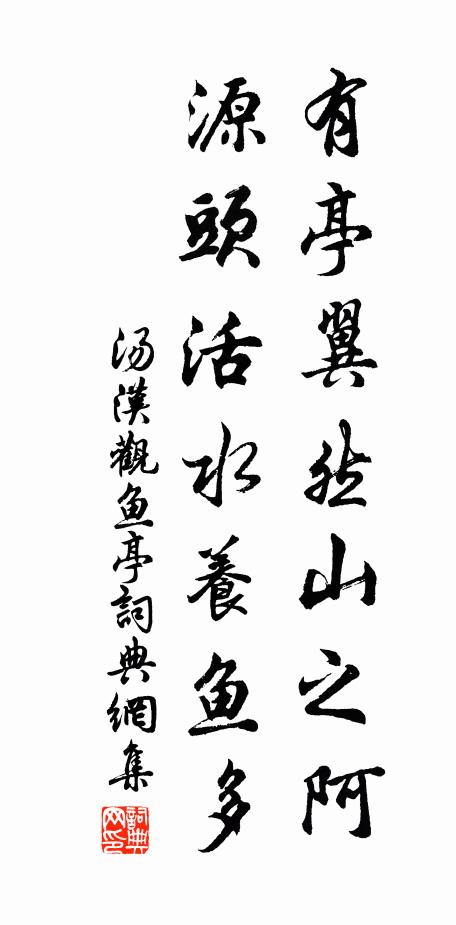 有亭翼然山之阿
源頭活水養鱼多
汤漢觀鱼亭詞典網集
詞典网印